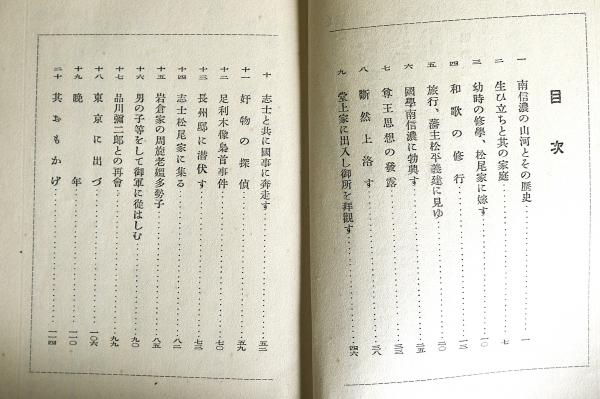 目次
一 南信濃の山河とその歴史 一
二 生ひ立ちと其の家庭 七
三 幼時の修學、松尾家に嫁す 一〇
四 和歌の修行 一三
五 旅行、藩主松平義建に見ゆ
六 國學南信濃に勃興す 二五
七 尊王思想の發露 三三
八 斷然上洛す 三八
九 堂上家に出入し御所を拜觀す 四六
十 志士と共に國事に奔走す 五二
十一 奸物の探偵 五九
十二 足利木像梟首事件
十三 長州邸に潜伏す 七三
十四 志士松尾家に集る 八二
十五 岩倉家の周旋老媼多勢子 八五
十六 男の子等をして御軍に從はしむ 九〇
十七 品川彌二郎との再會 九九
十八 東京に出づ 一〇六
十九 晩年 一一〇
二十 其おもかげ 一一四